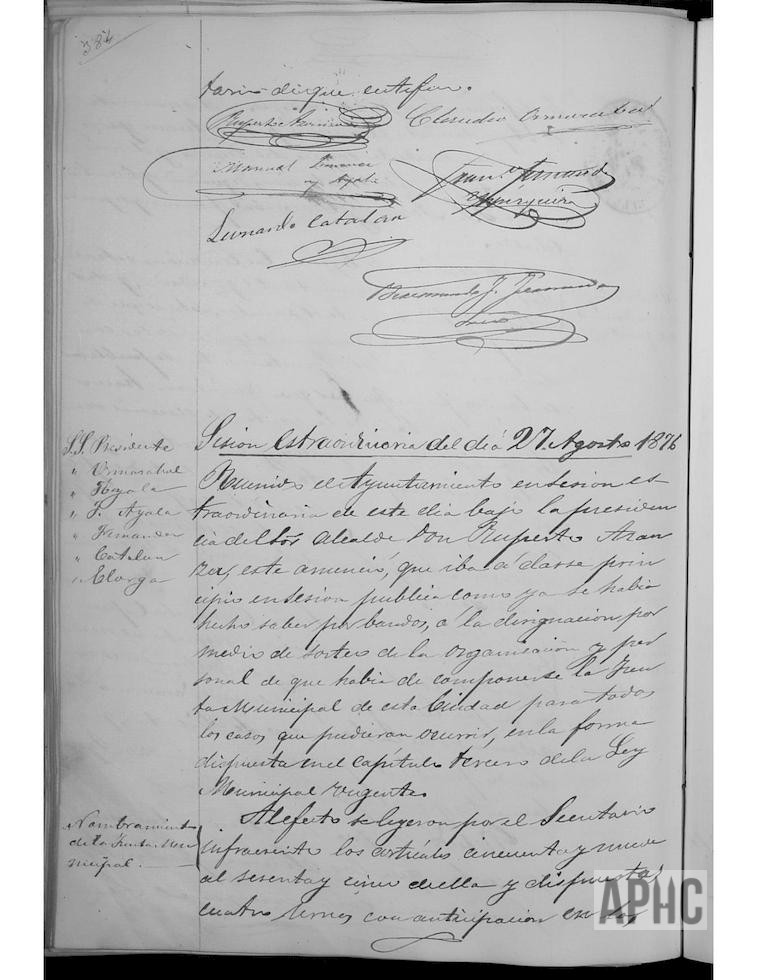 384
tario de que certifico.
Ruperto Aranza
Claudio Ormazabal
Manuel
y Ayala
Fran.co Fernand
Leonardo Catalan
Sesion estraordinaria del dia 27. Agosto 1876
S.S. Presidente
" Ormazabal
" Ayala
" F. Ayala
" Fernandez
" Catalan
" Elorza
Reunido el Ayuntamiento en sesion es
traordinaria de este dia bajo la presiden
cia del Sor Alcalde Don Ruperto Aran
za, este anunció, que iba á darse prin
cipio en sesion publica como ya se habia
hecho saber por bandos, á la designacion por
medio de sorteo de la organisacion y per
sonal de que habia de componerse la Jun
ta Municipal de esta Ciudad para todos
los casos que pudieran ocurrir, en la forma
dispuesta en el capítulo tercero de la Ley
Municipal vigente.
Nombramiento
de la Junta Mu
nicipal.
Al efecto se leyeron por el Secretario
infrascrito los artículos cincuenta y nueve
al sesenta y cinco de ella y dispuestas
cuatro urnas con anticipacion en las
APHC